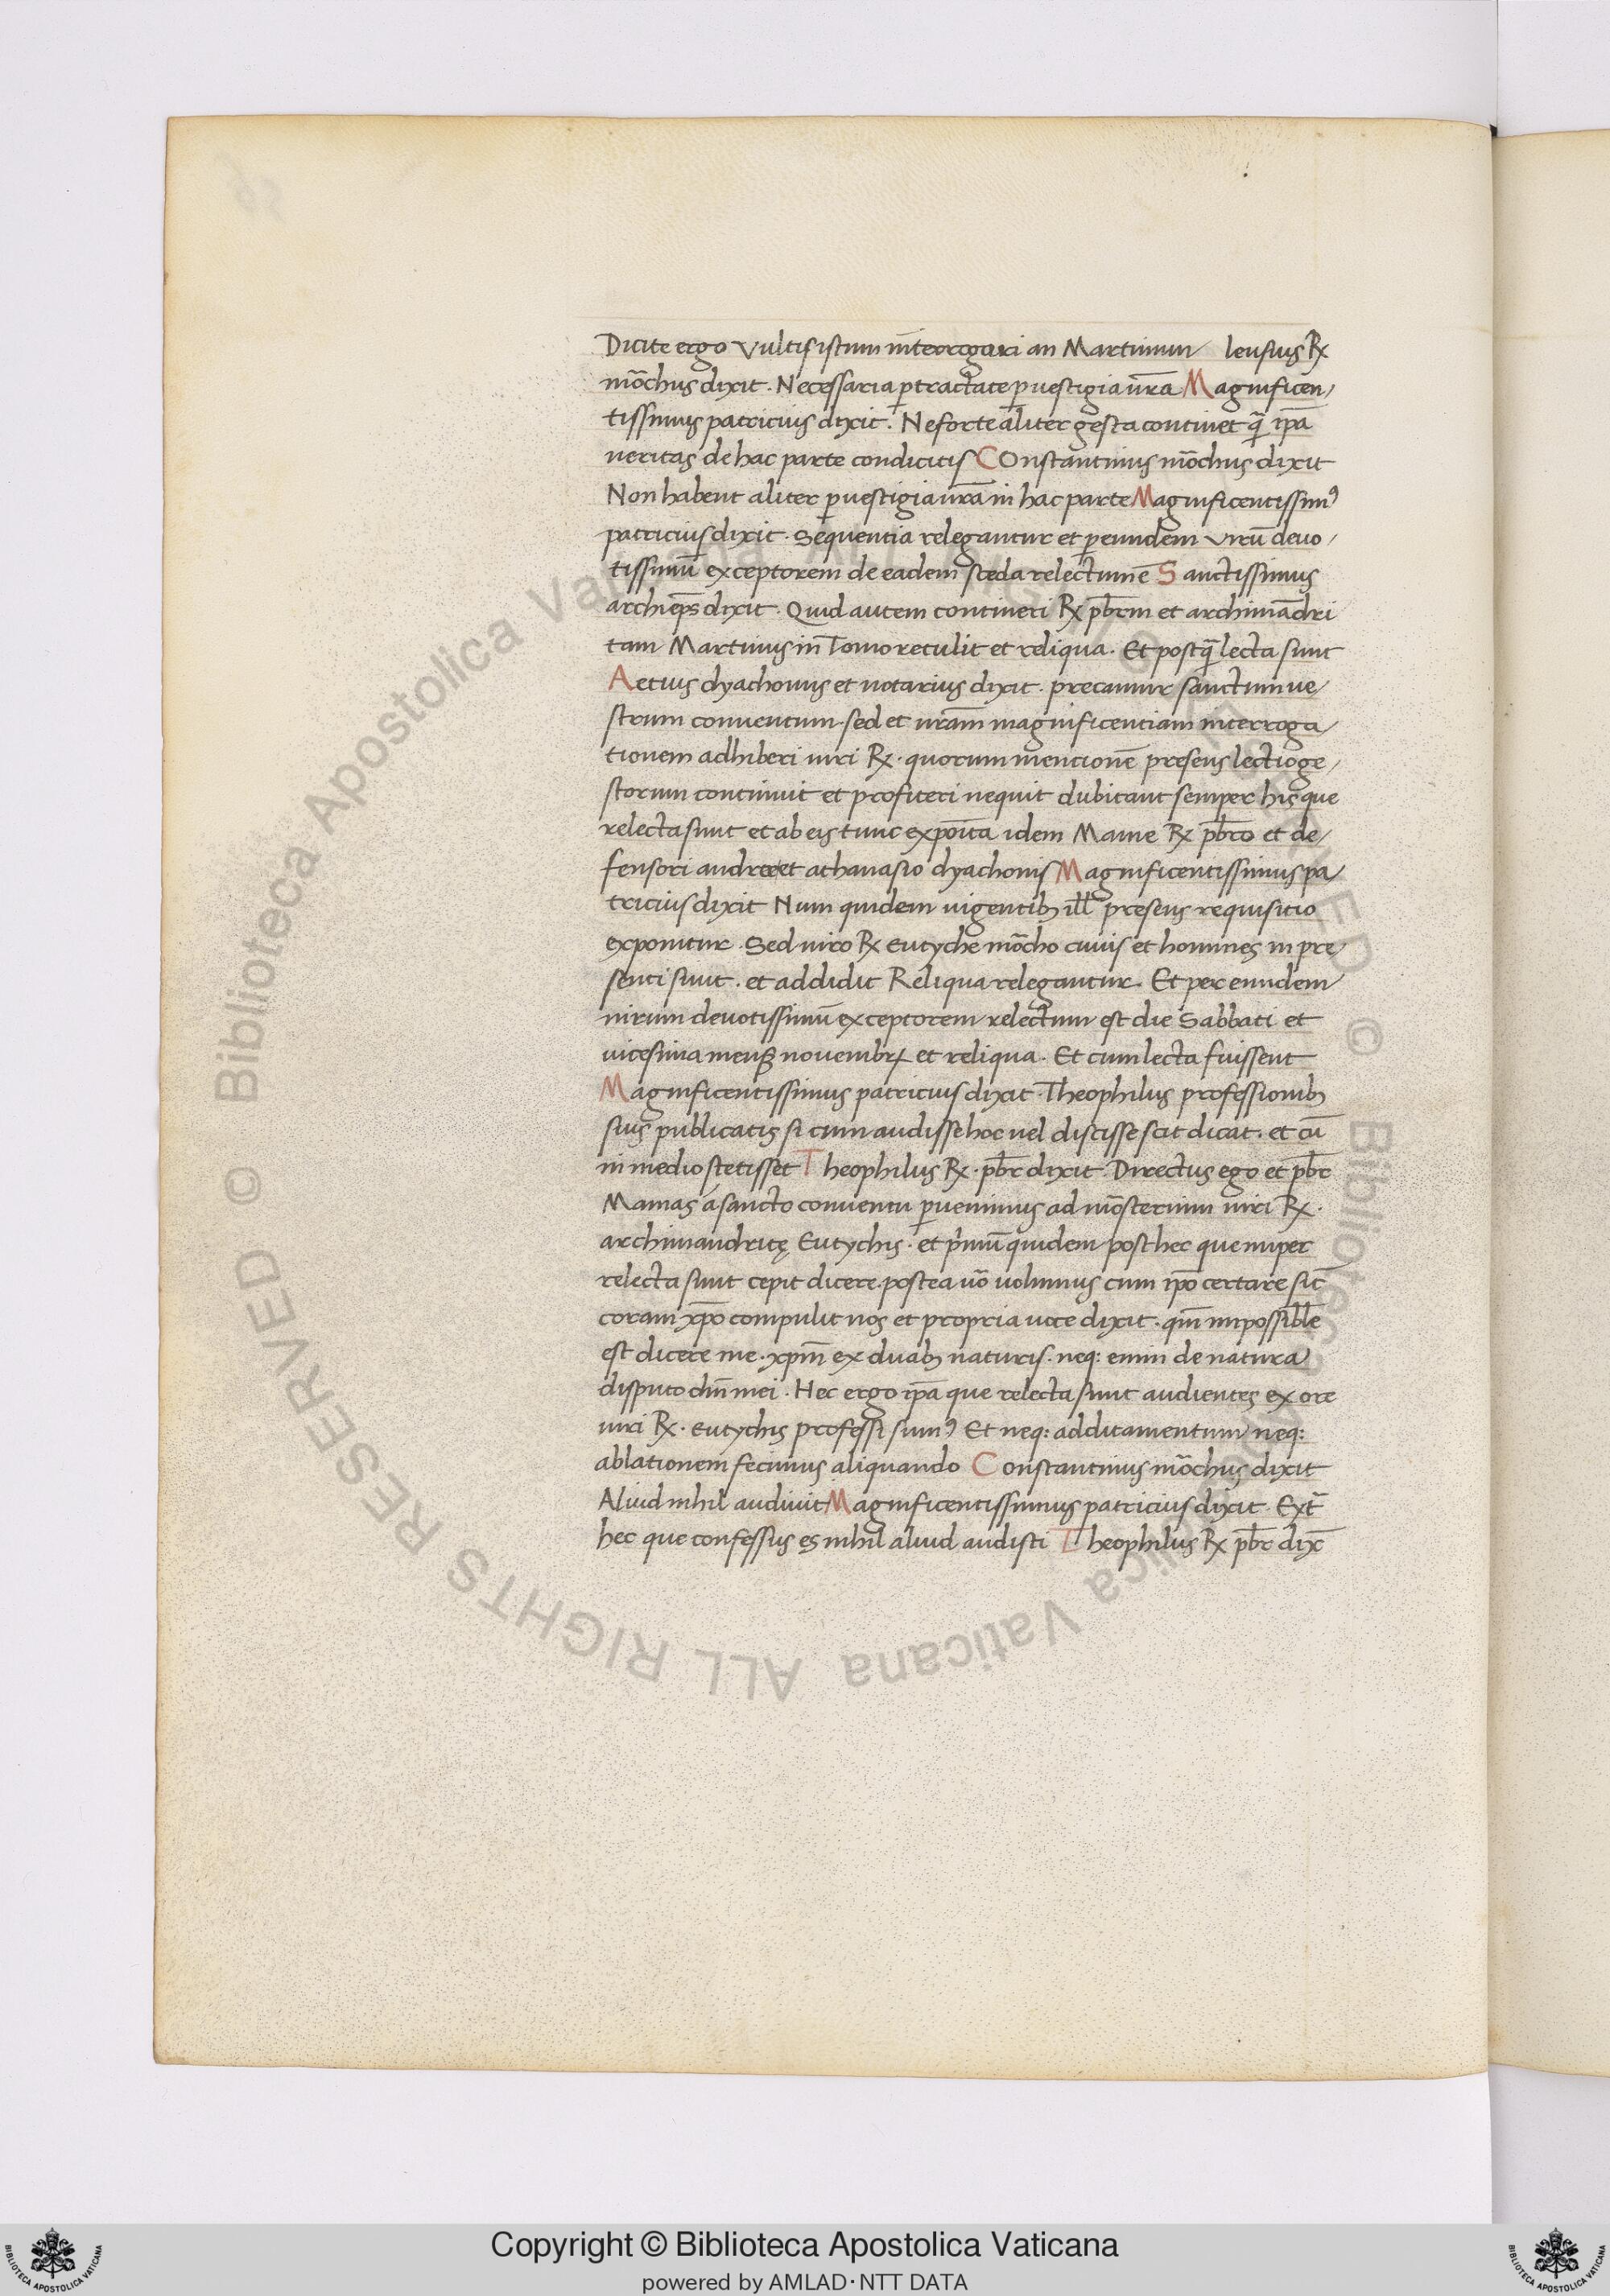 Dicite ergo Vultis istum int̄eorogari an Martinum leusius ℞
mōchus dixit. Necessaria ꝑtractate ꝑ uestigia ur̄a Magnificen/
tissimus patricius dixit. Ne forte aliter gesta continet qͣ̄ ip̄a
ueritas de hac parte condicitis COnstantinus mōchus dixit
Non habent aliter ꝑ uestigia ur̄a in hac parte Magnificentissimꝰ
patricius dixit. Sequentia relegantur et ꝑ eundem Virū deuo/
tissimū exceptorem de eadem sceda relectum ē Sanctissimus
archiep̄s dixit. Quid autem contineri ℞ pb̄rm et archimādri
tam Martinus in Tomo retulit et reliqua. Et postqͣ̄ lecta sunt
Aetius dyachonus et notarius dixit. precamur sanctum ue/
strum conuentum. sed et ur̄am magnificentiam interroga/
tionem adhiberi uiri ℞. quorum mentionē presens lectio ge/
storum continuit et profiteri nequit dubitant semper his que
relecta sunt et ab eis tunc expoīta idem Mame ℞ pb̄ro et de/
fensori andree et athanasio dyachonis Magnificentissimus pa/
tricius dixit Num quidem uigentibꝫ ill̄ presens requisitio
exponitur. Sed uiro ℞ Eutyche mōcho cuius et homines in pre/
senti sunt. et addidit Reliqua relegantur. Et per eundem
uirum deuotissimū exceptorem relectum est die Sabbati et
uicesima mensꝭ nouembrꝭ et reliqua. Et cum lecta fuissent
Magnificentissimus patricius dixit. Theophilus professionibꝫ
suis publicatis si cum audisse hoc uel discisse scit dicat. et cū
in medio stetisset Theophilus ℞. pb̄r dixit. Directus ego et pb̄r
Mamas a sancto conuentu ꝑuenimus ad mōsterium uiri ℞.
archimandritę Eutychis. et pͥmū quidem post hec que nuper
relecta sunt cepit dicere. postea uō uolumus cum ip̄o certare sic̄
coram xp̄o compulit nos et propria uoce dixit. qm̄ impossibl̄e
est dicere me. xp̄m ex duabꝫ naturis. neq: enim de natura
disputo dn̄i mei. Hec ergo ip̄a que relecta sunt audientes ex ore
uiri ℞. Eutychis professi sumꝰ Et neq: additamentum neq:
ablationem fecimus aliquando Constantinus mōchus dixit
Aliud nihil audiuit Magnificentissimus patricius dixit. Extͣ
hec que confessus es nihil aliud audisti Theophilus ℞ pb̄r dix̄
Copyright © Biblioteca Apostolica Vaticana
powered by AMLAD·NTT DATA